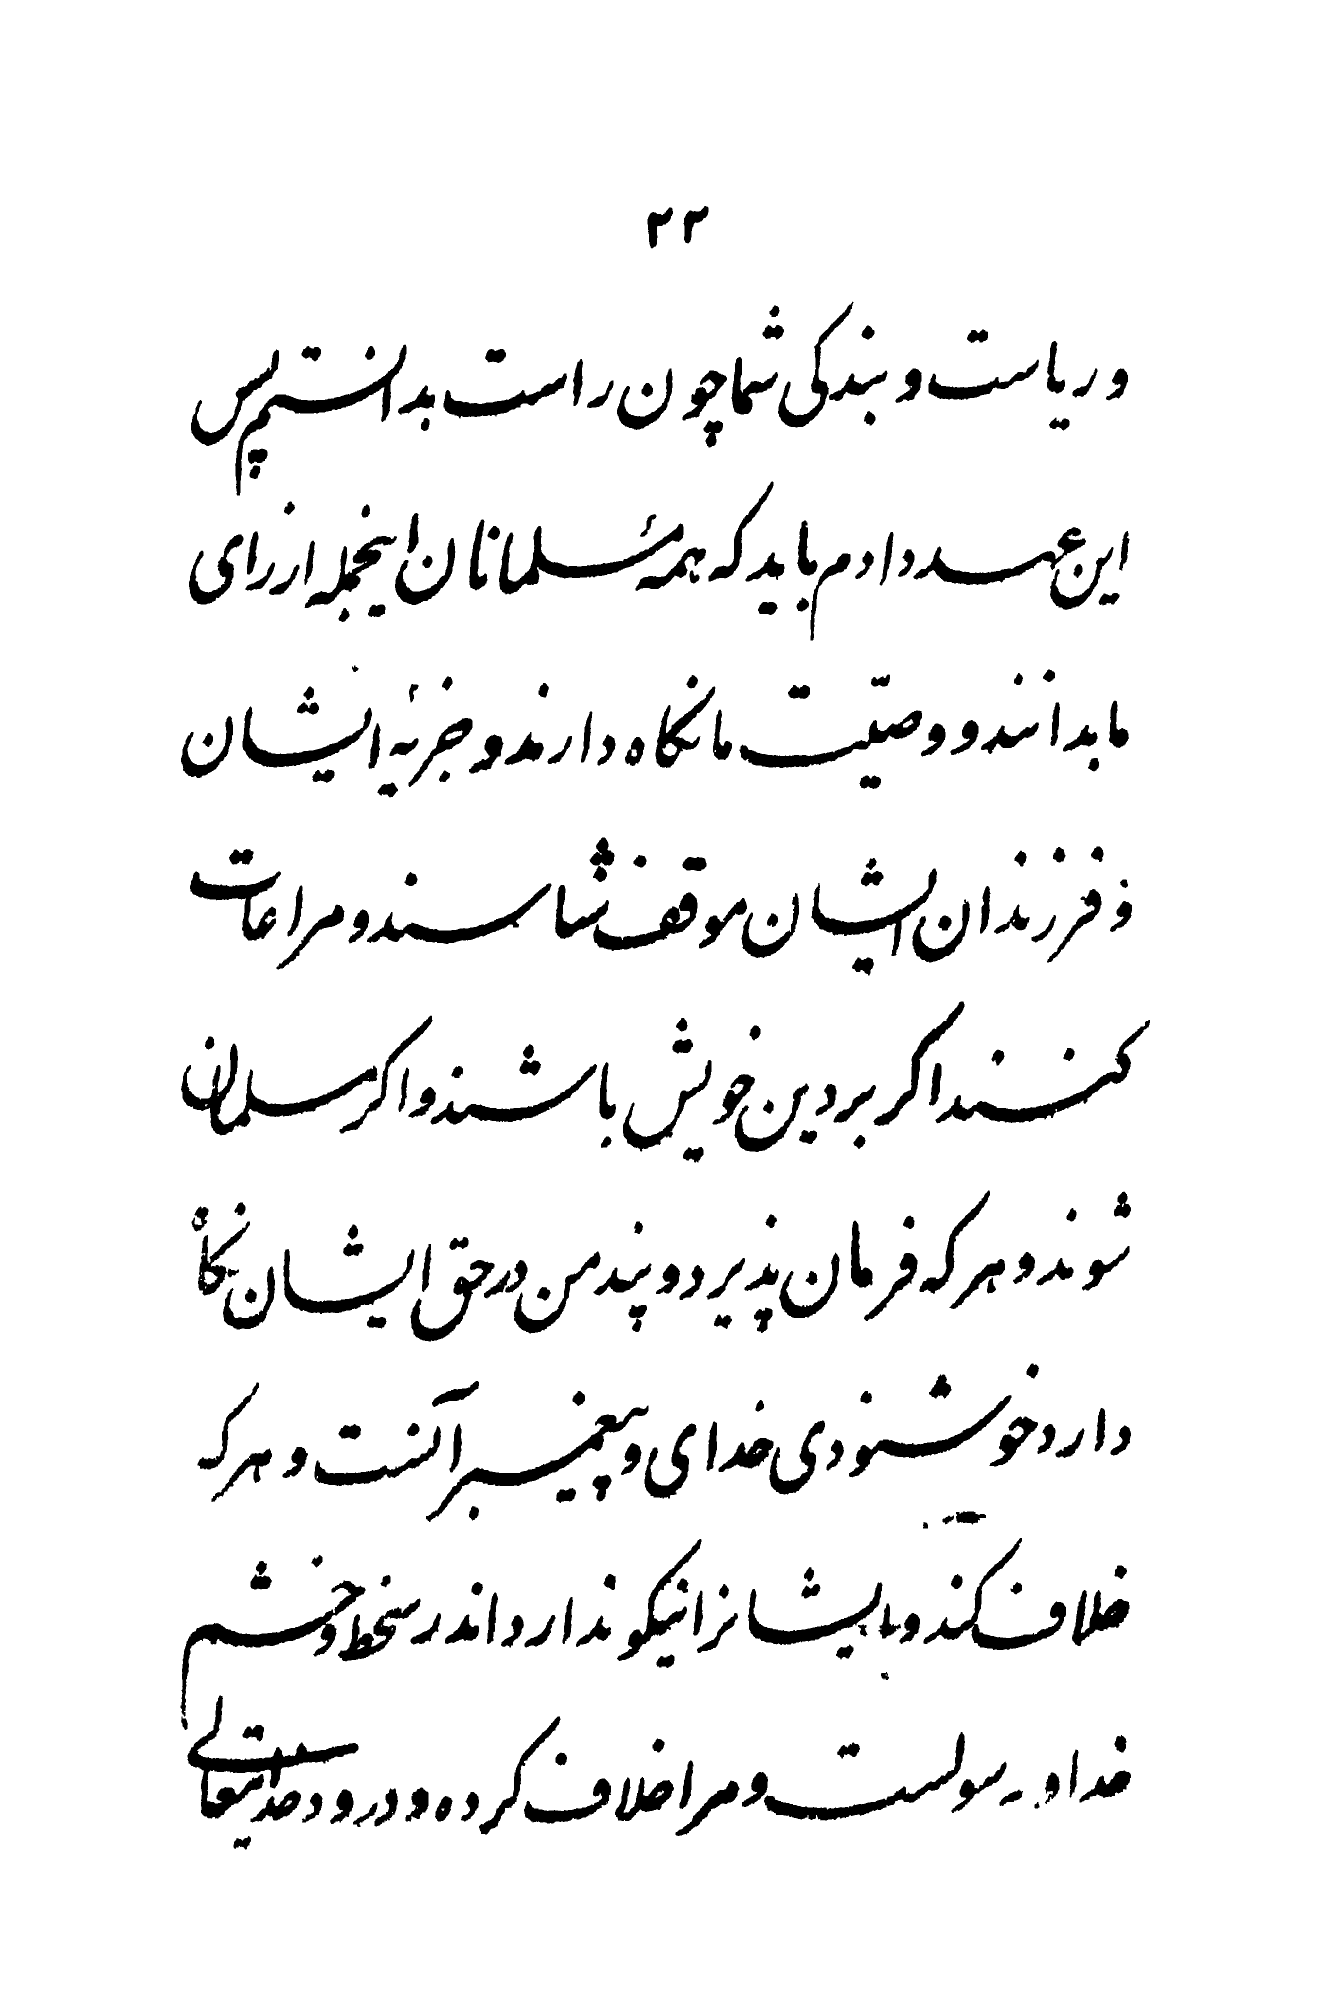 ۲۳
و ریاست و بندکی شما چون راست بدانستیم پس
این عهد دادم باید که همه مسلمانان اینجمله از رای
ما بدانند و وصیّت ما نکاه دارند و جزیهٔ ایشان
و فرزندان ایشان موقف شناسند و مراعات
کنند اکر بر دین خویش باشند و اکر مسلمان
شوند و هر که فرمان پذیرد و پند من در حق ایشان نکاه
دارد خوشنودی خدای و پیغمبر آنست و هر که
خلاف کند و بایشانرا نیکو ندارد اندر سخط و خشم
خدا و رسولست و مرا خلاف کرده و درود خدایتعالی